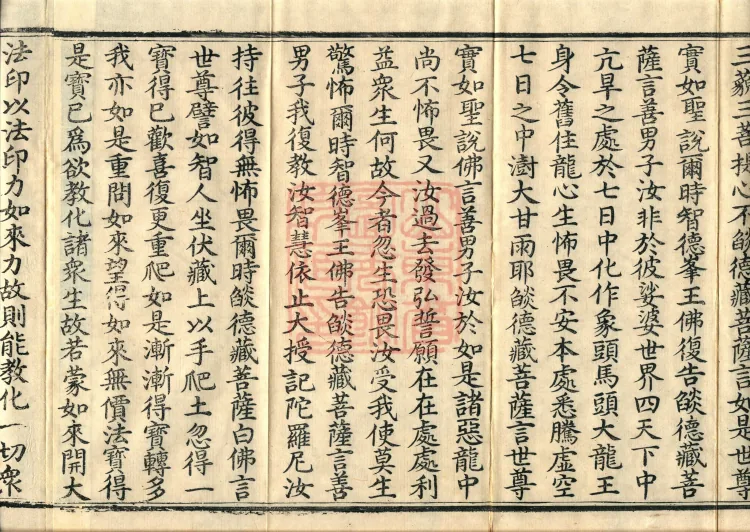 三藐三菩提心不燄德藏菩薩言如是世尊
實如聖說爾時智德峯王佛復告燄德藏菩
薩言善男子汝非於彼娑婆世界四天下中
亢旱之處於七日中化作象頭馬頭大龍王
身令舊住龍心生怖畏不安本處悉騰虛空
七日之中澍大甘雨耶燄德藏菩薩言世尊
實如聖說佛言善男子汝於如是諸惡龍中
尚不怖畏又汝過去發弘誓願在在處處利
益衆生何故今者忽生恐畏汝受我使莫生
驚怖爾時智德峯王佛告燄德藏菩薩言善
男子我復教汝智慧依止大授記陀羅尼汝
持往彼得無怖畏爾時燄德藏菩薩白佛言
世尊譬如智人坐伏藏上以手爬土忽得一
寶得已歡喜復更重爬如是漸漸得寶轉多
我亦如是重問如來望得如來無價法寶得
是寶已爲欲教化諸衆生故若蒙如來開大
法印以法印力如來力故則能教化一切衆